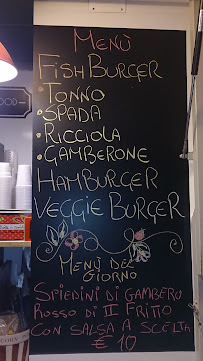 MENÙ
FISH BURGER
• TONNO
• SPADA
• RICCIOLA
• GAMBERONE
HAMBURGER
VEGGIE BURGER
MENÙ DEL
GIORNO
SPIEDINI DI GAMBERO
ROSSO DI II FRITTO
CON SALSA A SCELTA
€ 10
OOD